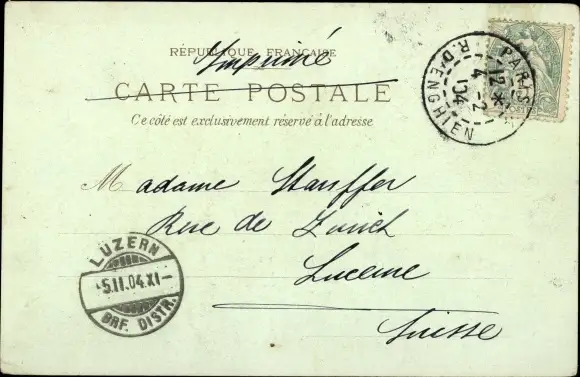 RÉPUBLIQUE FRANÇAISE
Imprimé
CARTE POSTALE
Ce côté est exclusivement réservé à l'adresse
PARIS
R. D'ENGHIEN
4 -2
04
Madame Stauffer
Rue de Zurich
Lucerne
Suisse
LUZERN
-5.II.04.XI-
BRF. DISTR.